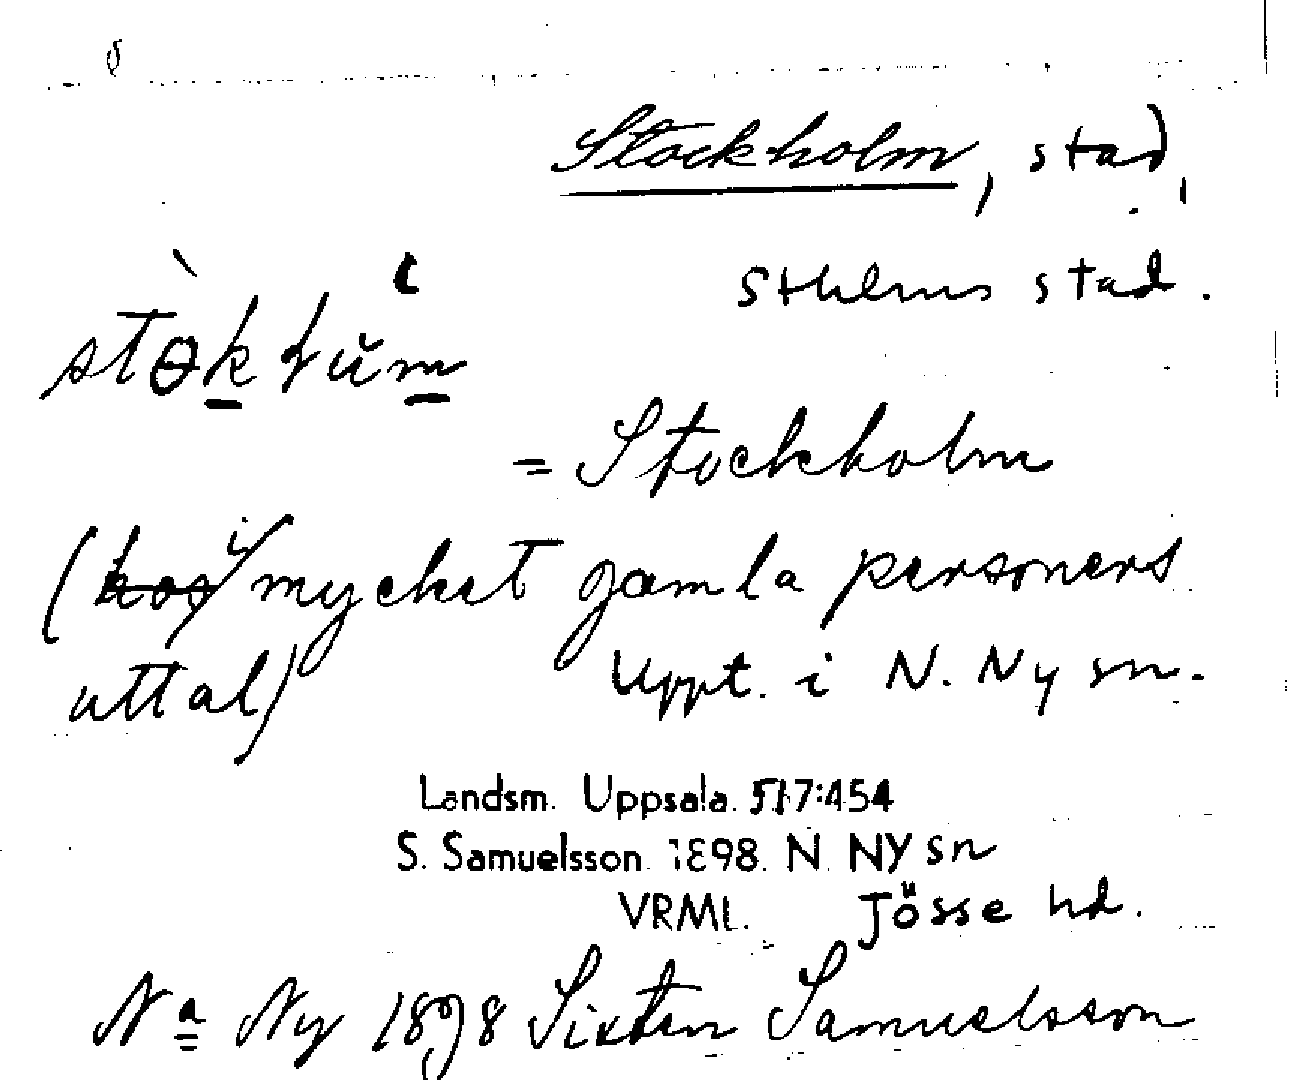 Stockholm, stad,
Sthlms stad.
= Stockholm
(hos i mycket gamla personers
uttal)
Uppt. i N. Ny sn.
Landsm. Uppsala. 517:454
S. Samuelsson. 1898. N. NY sn
VRML. Jösse hd.
Na Ny 1898 Sixten Samuelsson